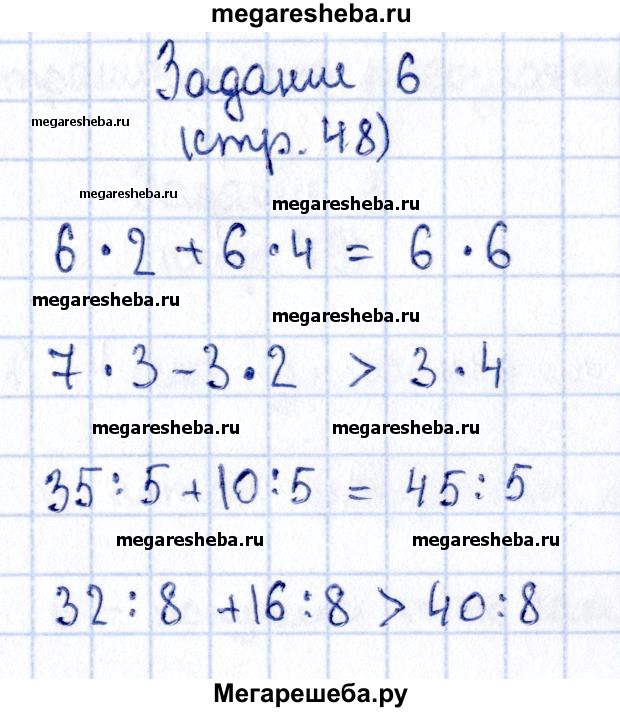 megaresheba.ru
Задание 6
megaresheba.ru
(стр. 48)
megaresheba.ru
megaresheba.ru
6 · 2 + 6 · 4 = 6 · 6
megaresheba.ru
megaresheba.ru
7 · 3 - 3 · 2 > 3 · 4
megaresheba.ru megaresheba.ru
35 : 5 + 10 : 5 = 45 : 5
megaresheba.ru megaresheba.ru
32 : 8 + 16 : 8 > 40 : 8
Мегарешеба.ру